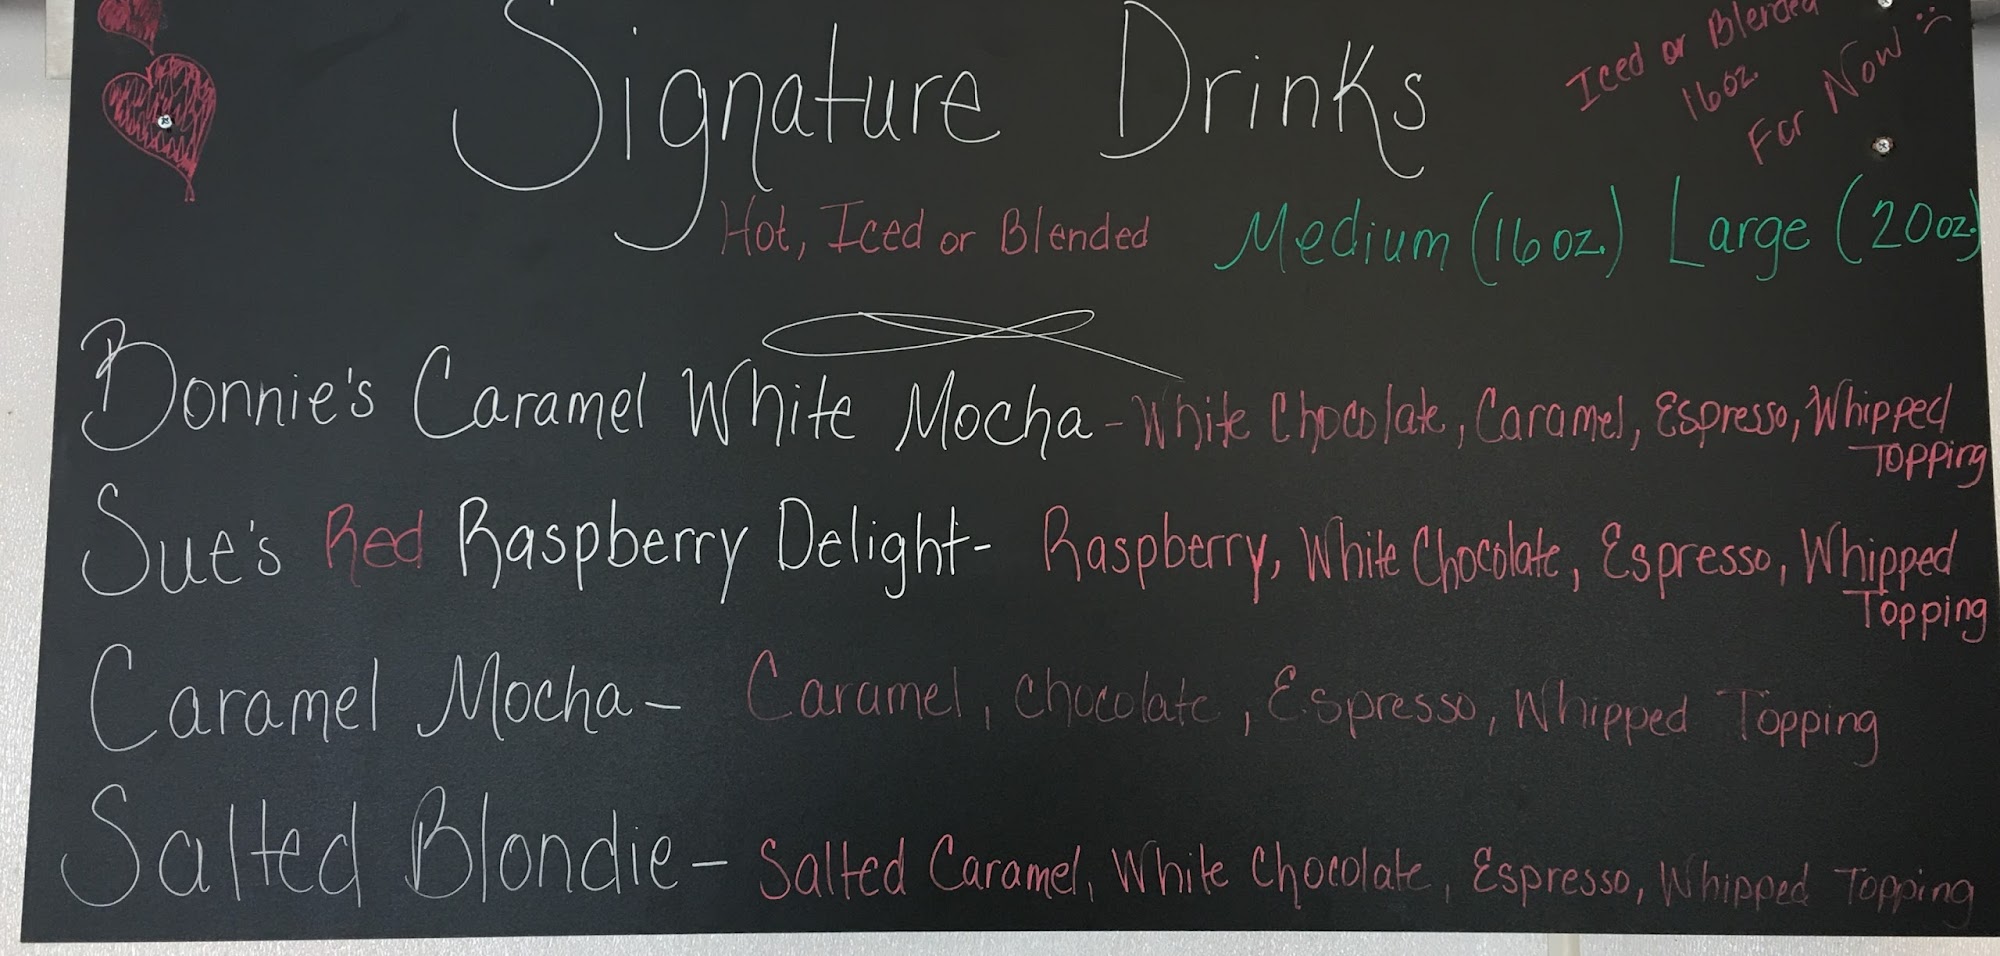 Signature Drinks
Iced or Blended
16oz.
For Now :(
Hot, Iced or Blended
Medium (16oz.) Large (20oz.)
Bonnie's Caramel White Mocha - White Chocolate, Caramel, Espresso, Whipped
Topping
Sue's Red Raspberry Delight - Raspberry, White Chocolate, Espresso, Whipped
Topping
Caramel Mocha - Caramel, Chocolate, Espresso, Whipped Topping
Salted Blondie - Salted Caramel, White Chocolate, Espresso, Whipped Topping